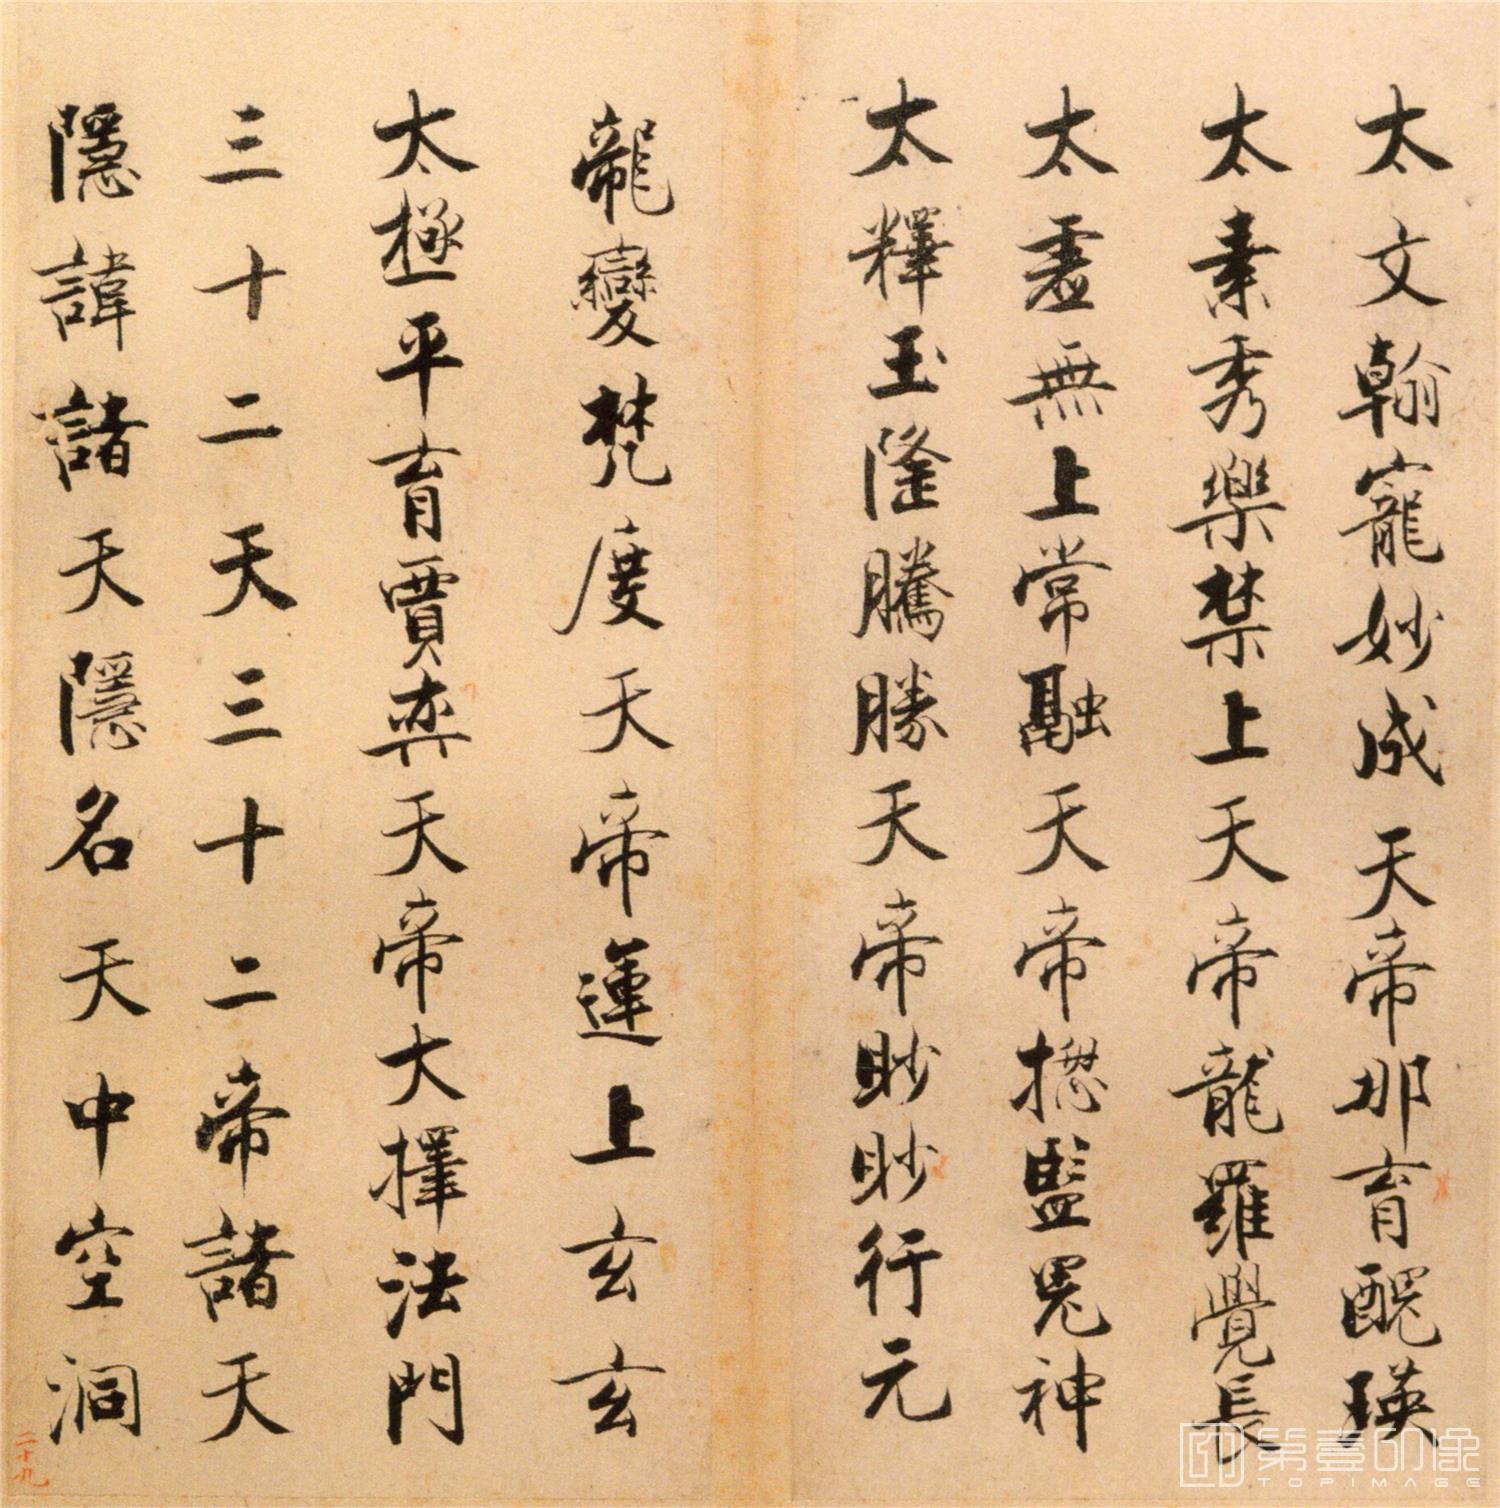 太文翰寵妙成天帝那育醜瑛
太素秀樂禁上天帝龍羅覺長
太虛無上常融天帝揔監鬼神
太釋玉隆騰勝天帝眇眇行元
龍變梵度天帝運上玄玄
太極平育賈弈天帝大擇法門
三十二天三十二帝諸天
隱諱諸天隱名天中空洞
二十九
第壹印象
TOPIMAGE